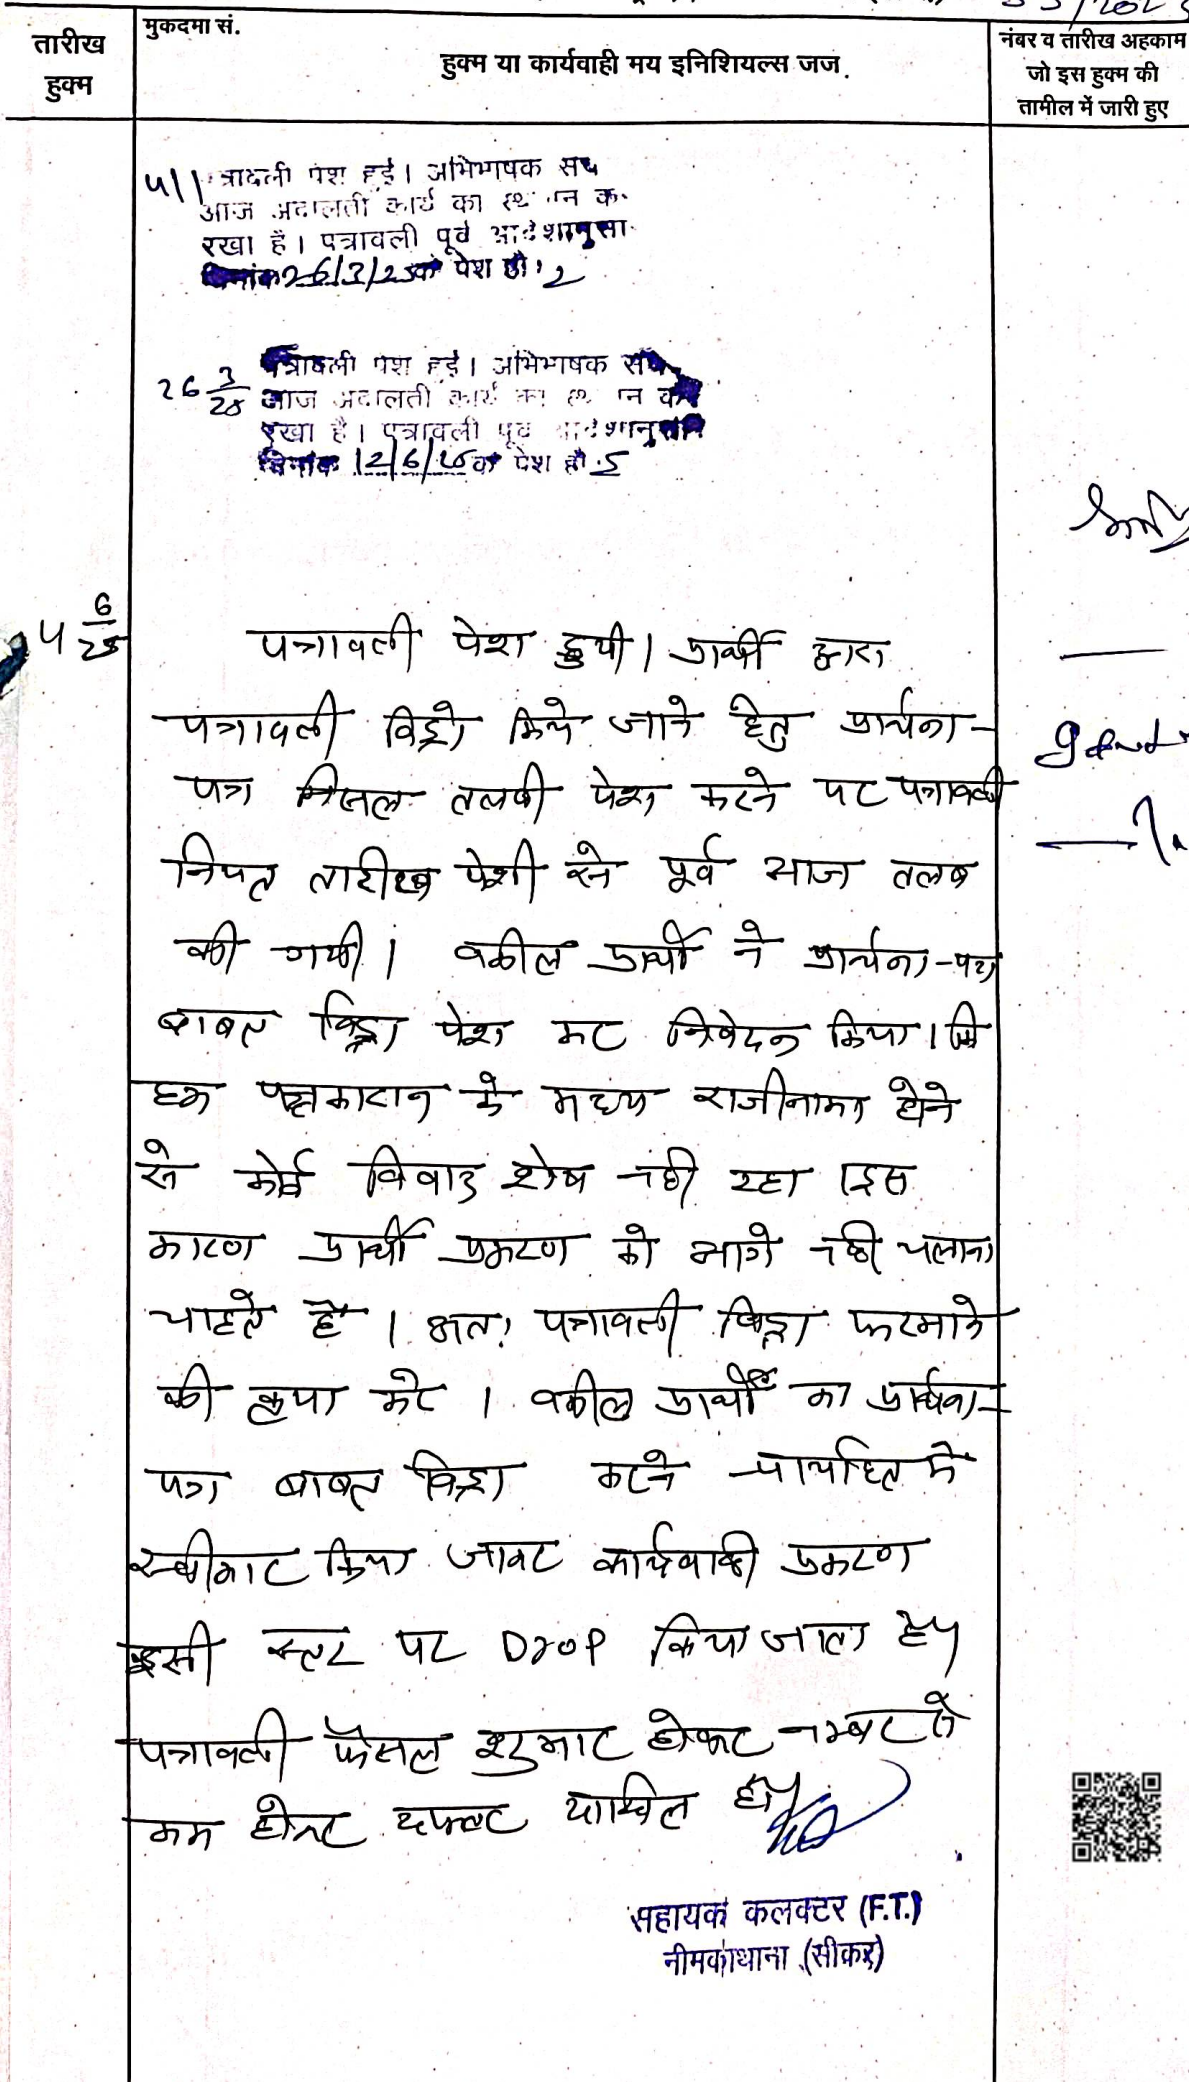 तारीख
हुक्म
मुकदमा सं.
हुक्म या कार्यवाही मय इनिशियल्स जज.
नंबर व तारीख अहकाम
जो इस हुक्म की
तामील में जारी हुए
पत्रावली पेश हुई। अभिभाषक संघ
आज अदालती कार्य का स्थगन कर
रखा है। पत्रावली पूर्व आदेशानुसार
दिनांक 26/3/25 को पेश हो।
26 3/25
पत्रावली पेश हुई। अभिभाषक संघ
आज अदालती कार्य का स्थगन कर
रखा है। पत्रावली पूर्व आदेशानुसार
दिनांक 12/6/25 को पेश हो
4 6/25
पत्रावली पेश हुयी। प्रार्थी द्वारा
पत्रावली विड्रो किये जाने हेतु प्रार्थना-
पत्र मिसल तलबी पेश करने पर पत्रावली
नियत तारीख पेशी से पूर्व आज तलब
की गयी। वकील प्रार्थी ने प्रार्थना-पत्र
बाबत विड्रा पेश कर निवेदन किया। कि
हम पक्षकारान के मध्य राजीनामा होने
से कोई विवाद शेष नही रहा। इस
कारण प्रार्थी प्रकरण को आगे नही चलाना
चाहते है। अतः पत्रावली विड्रा फरमाने
की कृपा करे। वकील प्रार्थी का प्रार्थना-
पत्र बाबत विड्रा करने न्यायहित मे
स्वीकार किया जाकर कार्यवाही प्रकरण
इसी स्तर पर Drop किया जाता है।
पत्रावली फैसल शुमार होकर नम्बर से
कम होकर दफ्तर दाखिल हो।
सहायक कलक्टर (F.T.)
नीमकाथाना (सीकर)